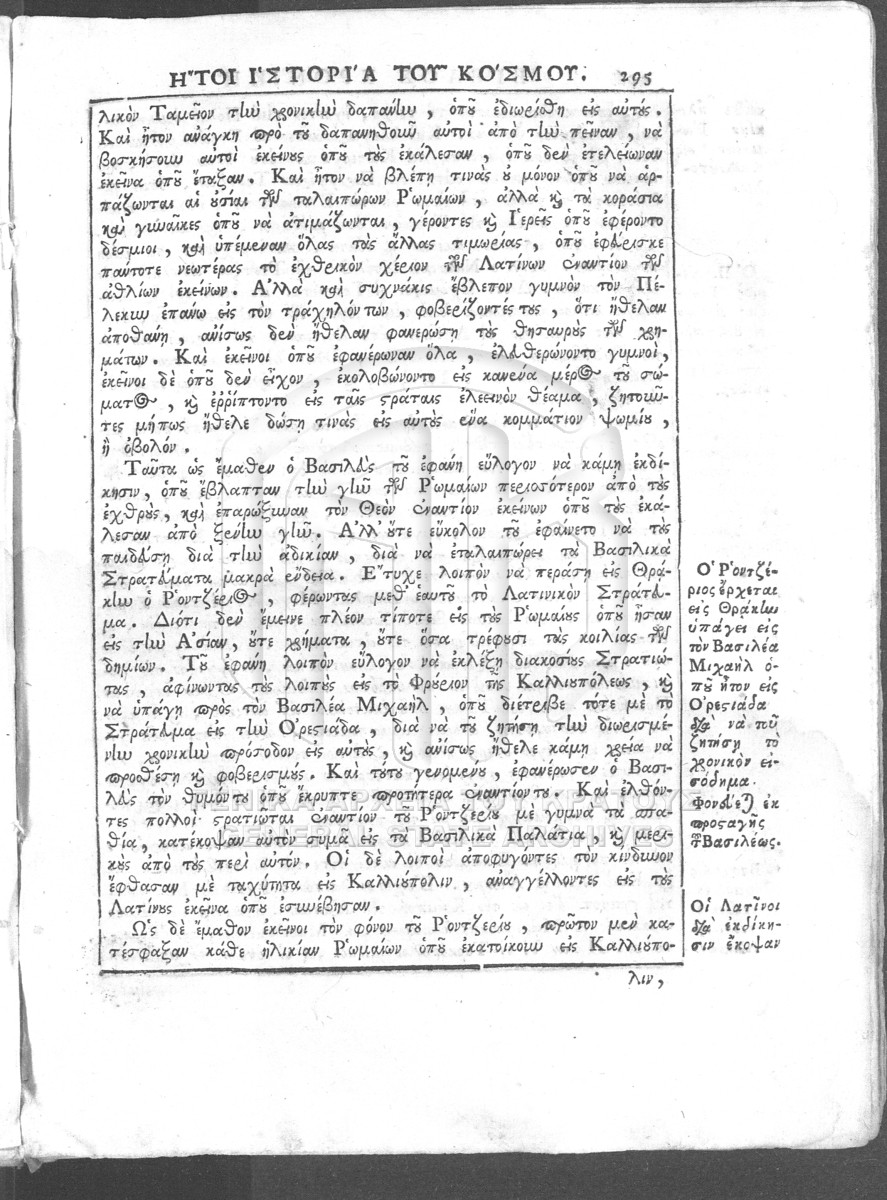 ΗΤΟΙ ἹΣΤΟΡΙΑ ΤΟΥ ΚΟΣΜΟΥ. 295
λικὸν Ταμεῖον τὴν χρονικὴν δαπάνην, ὁποῦ ἐδιωρίσθη εἰς αὐτούς.
Καὶ ἦτον ἀνάγκη πρὸ τοῦ δαπανηθοῦν αὐτοὶ ἀπὸ τὴν πεῖναν, νὰ
βοσκήσουν αὐτοὶ ἐκείνους ὁποῦ τοὺς ἐκάλεσαν, ὁποῦ δὲν ἐτελείωναν
ἐκεῖνα ὁποῦ ἔταξαν. Καὶ ἦτον νὰ βλέπῃ τινὰς οὐ μόνον ὁποῦ νὰ ἁρ-
πάζωνται αἱ οὐσίαι τῶν ταλαιπώρων Ρωμαίων, ἀλλὰ καὶ τὰ κοράσια
καὶ γυναῖκες ὁποῦ νὰ ἀτιμάζωνται, γέροντες καὶ Ἱερεῖς ὁποῦ ἐφέροντο
δέσμιοι, καὶ ὑπέμεναν ὅλας τὰς ἄλλας τιμωρίας, ὁποῦ ἐφεύρισκε
πάντοτε νεωτέρας τὸ ἐχθρικὸν χέριον τῶν Λατίνων ἐναντίον τῶν
ἀθλίων ἐκείνων. Ἀλλὰ καὶ συχνάκις ἔβλεπον γυμνὸν τὸν Πέ-
λεκυν ἐπάνω εἰς τὸν τράχηλόν των, φοβερίζοντές τους, ὅτι ἤθελαν
ἀποθάνῃ, ἀνίσως δὲν ἤθελαν φανερώσῃ τοὺς θησαυροὺς τῶν χρη-
μάτων. Καὶ ἐκεῖνοι ὁποῦ ἐφανέρωναν ὅλα, ἐλευθερώνοντο γυμνοὶ,
ἐκεῖνοι δὲ ὁποῦ δὲν εἶχον, ἐκολοβώνοντο εἰς κανένα μέρος τοῦ σώ-
ματος, καὶ ἐρρίπτοντο εἰς ταῖς στράταις ἐλεεινὸν θέαμα, ζητοῦν-
τες μήπως ἤθελε δώσῃ τινὰς εἰς αὐτοὺς ἕνα κομμάτιον ψωμίου,
ἢ ὀβολόν.
Ταῦτα ὡς ἔμαθεν ὁ Βασιλεὺς τοῦ ἐφάνη εὔλογον νὰ κάμῃ ἐκδί-
κησιν, ὁποῦ ἔβλαπταν τὴν γῆν τῶν Ρωμαίων περισσότερον ἀπὸ τοὺς
ἐχθροὺς, καὶ ἐπαρώξυναν τὸν Θεὸν ἐναντίον ἐκείνων ὁποῦ τοὺς ἐκά-
λεσαν ἀπὸ ξένην γῆν. Ἀλλ' οὔτε εὔκολον τοῦ ἐφαίνετο νὰ τοὺς
παιδεύσῃ διὰ τὴν ἀδικίαν, διὰ νὰ ἐταλαιπώρει τὰ Βασιλικὰ
Στρατεύματα μακρὰ ἔνδεια. Ἔτυχε λοιπὸν νὰ περάσῃ εἰς Θρά-
κην ὁ Ῥοντζέριος, φέρωντας μεθ' ἑαυτοῦ τὸ Λατινικὸν Στράτευ-
μα. Διότι δὲν ἔμεινε πλέον τίποτε εἰς τοὺς Ρωμαίους ὁποῦ ἦσαν
εἰς τὴν Ἀσίαν, οὔτε χρήματα, οὔτε ὅσα τρέφουσι τὰς κοιλίας τῶν
δημίων. Τοῦ ἐφάνη λοιπὸν εὔλογον νὰ ἐκλέξῃ διακοσίους Στρατιώ-
τας, ἀφίνωντας τοὺς λοιποὺς εἰς τὸ Φρούριον τῆς Καλλιουπόλεως, καὶ
νὰ ὑπάγῃ πρὸς τὸν Βασιλέα Μιχαὴλ, ὁποῦ διέτριβε τότε μὲ τὸ
Στράτευμα εἰς τὴν Ὀρεστιάδα, διὰ νὰ τοῦ ζητήσῃ τὴν διωρισμέ-
νην χρονικὴν πρόσοδον εἰς αὐτοὺς, καὶ ἀνίσως ἤθελε κάμῃ χρεία νὰ
προσθέσῃ καὶ φοβερισμούς. Καὶ τούτου γενομένου, ἐφανέρωσεν ὁ Βασι-
λεὺς τὸν θυμόν του ὁποῦ ἔκρυπτε προτήτερα ἐναντίον του. Καὶ ἐλθόν-
τες πολλοὶ στρατιῶται ἐναντίον τοῦ Ῥοντζερίου μὲ γυμνὰ τὰ σπα-
θία, κατέκοψαν αὐτὸν συμὰ εἰς τὰ Βασιλικὰ Παλάτια, καὶ μερι-
κοὺς ἀπὸ τοὺς περὶ αὐτόν. Οἱ δὲ λοιποὶ ἀποφυγόντες τὸν κίνδυνον
ἔφθασαν μὲ ταχύτητα εἰς Καλλιούπολιν, ἀναγγέλλοντες εἰς τοὺς
Λατίνους ἐκεῖνα ὁποῦ ἐσυνέβησαν.
Ὡς δὲ ἔμαθον ἐκεῖνοι τὸν φόνον τοῦ Ῥοντζερίου, πρῶτον μὲν κα-
τέσφαξαν κάθε ἡλικίαν Ρωμαίων ὁποῦ ἐκατοίκουν εἰς Καλλιούπο-
λιν,
Ὁ Ῥοντζέ-
ριος ἔρχεται
εἰς Θράκην
ὑπάγει εἰς
τὸν Βασιλέα
Μιχαὴλ ὁ-
ποῦ ἦτον εἰς
Ὀρεστιάδα
διὰ νὰ τοῦ
ζητήσῃ τὸ
χρονικὸν εἰ-
σόδημα.
Φονεύεται ἐκ
προσταγῆς
τοῦ Βασιλέως.
Οἱ Λατῖνοι
διὰ ἐκδίκη-
σιν ἔκοψαν
ΓΕΝΙΚΑ ΑΡΧΕΙΑ ΤΟΥ ΚΡΑΤΟΥΣ
GENERAL STATE ARCHIVES